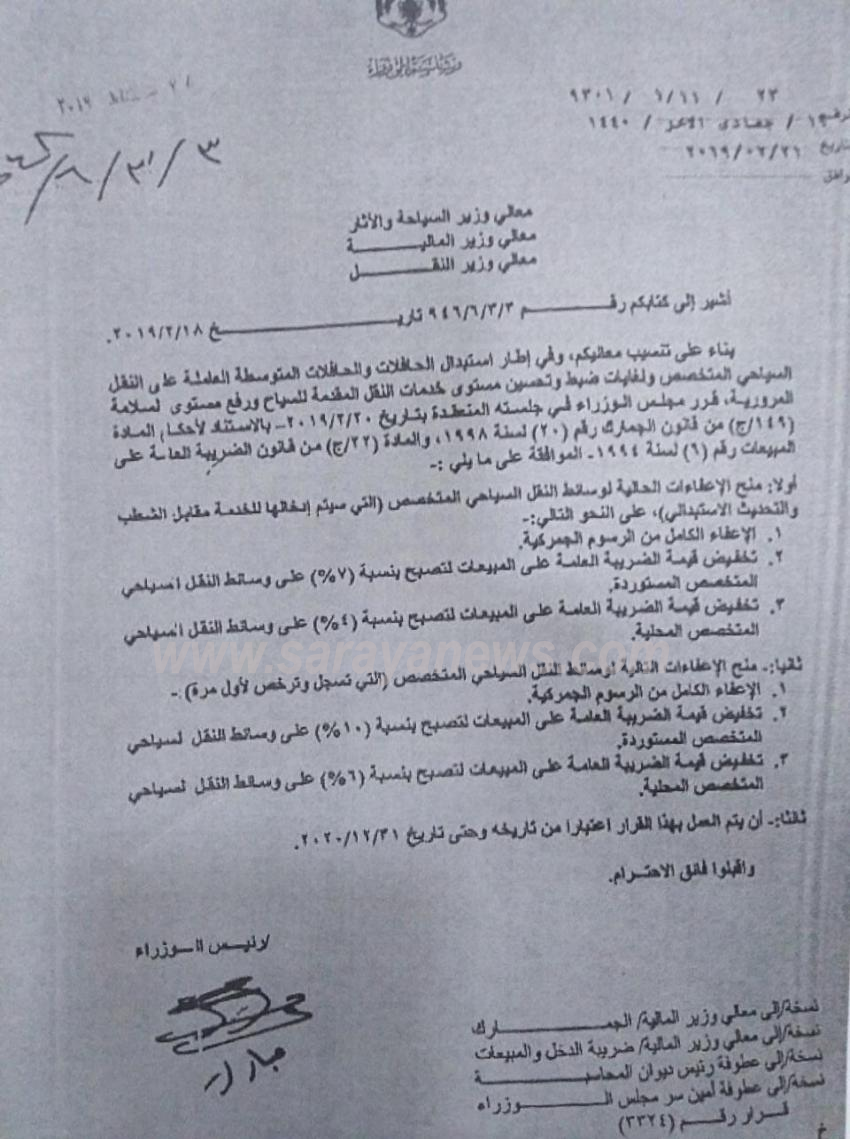 ٢٣ / ١/١١ / ٩٣٠١
١٦ / جمادى الآخر / ١٤٤٠
٢٠١٩/٠٢/٢١
٣ / ٣١ / ٨ /
معالي وزير السياحة والآثار
معالي وزير الماليـــــــة
معالي وزير النقـــــــل
أشير إلى كتابكم رقـــــــم ٩٤٦/٦/٣/٣ تاريـــــــخ ٢٠١٩/٢/١٨.
بناء على تنسيب معاليكم، وفي إطار استبدال الحافلات والحافلات المتوسطة العاملة على النقل
السياحي المتخصص ولغايات ضبط وتحسين مستوى خدمات النقل المقدمة للسياح ورفع مستوى السلامة
المرورية، قرر مجلس الوزراء في جلسته المنعقدة بتاريخ ٢٠١٩/٢/٢٠ـ بالاستناد لأحكام المادة
(١٤٩/ج) من قانون الجمارك رقم (٢٠) لسنة ١٩٩٨، والمادة (٢٢/ج) من قانون الضريبة العامة على
المبيعات رقم (٦) لسنة ١٩٩٤ـ الموافقة على ما يلي :-
أولا: منح الإعفاءات الحالية لوسائط النقل السياحي المتخصص (التي سيتم إدخالها للخدمة مقابل الشطب
والتحديث الاستبدالي)، على النحو التالي:-
١. الإعفاء الكامل من الرسوم الجمركية.
٢. تخفيض قيمة الضريبة العامة على المبيعات لتصبح بنسبة (٧%) على وسائط النقل السياحي
المتخصص المستوردة.
٣. تخفيض قيمة الضريبة العامة على المبيعات لتصبح بنسبة (٤%) على وسائط النقل السياحي
المتخصص المحلية.
www.sarayanews.com
ثانيا:- منح الإعفاءات التالية لوسائط النقل السياحي المتخصص (التي تسجل وترخص لأول مرة) :-
١. الإعفاء الكامل من الرسوم الجمركية.
٢. تخفيض قيمة الضريبة العامة على المبيعات لتصبح بنسبة (١٠%) على وسائط النقل السياحي
المتخصص المستوردة.
٣. تخفيض قيمة الضريبة العامة على المبيعات لتصبح بنسبة (٦%) على وسائط النقل السياحي
المتخصص المحلية.
ثالثا:- أن يتم العمل بهذا القرار اعتبارا من تاريخه وحتى تاريخ ٢٠٢٠/١٢/٣١.
واقبلوا فائق الاحتـرام.
/رئيـس الـــوزراء
نسخة/إلى معالي وزير المالية/ الجمـــــــارك
نسخة/إلى معالي وزير المالية/ ضريبة الدخل والمبيعات
نسخة/إلى عطوفة رئيس ديوان المحاسبـــــــة
نسخة/إلى عطوفة أمين سر مجلس الـــــــوزراء
قـرار رقــم (٣٣٢٤)
خ